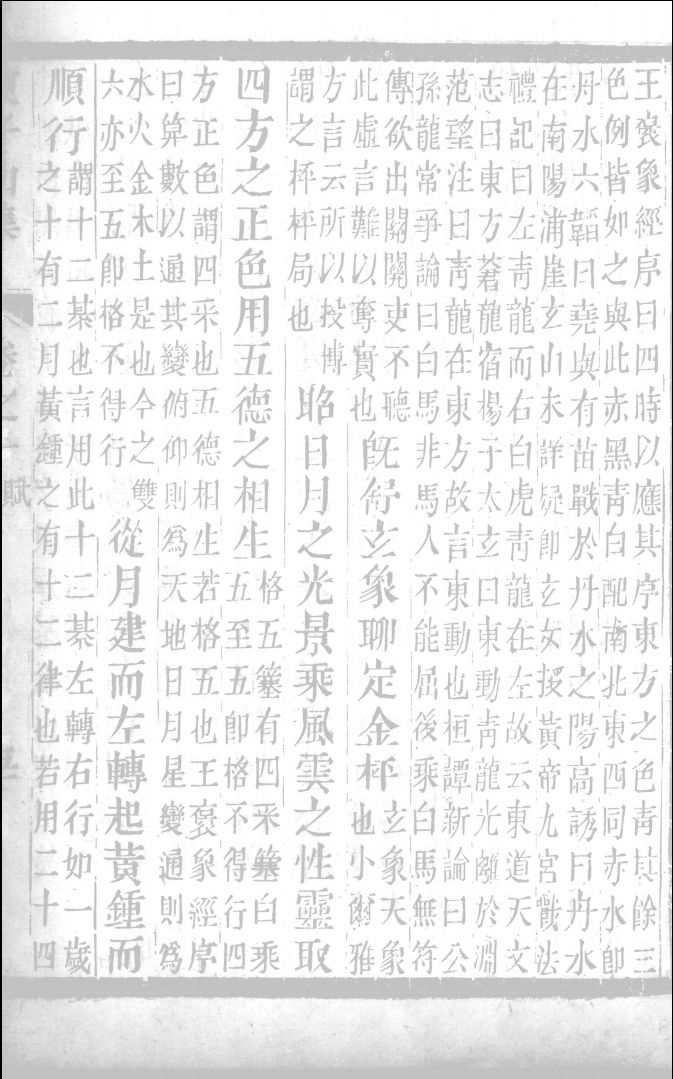 王褒象經序曰四時以應其序東方之色靑其餘三
色例皆如之與此赤黑靑白配南北東西同赤水卽
丹水六韜曰堯與有苗戰於丹水之陽高誘曰丹水
在南陽浦崖玄山未詳疑卽玄女授黃帝九宮戰法
禮記曰左靑龍而右白虎靑龍在左故云東道天文
志曰東方蒼龍宿揚子太玄曰東動靑龍光離於淵
范望注曰靑龍在東方故言東動也桓譚新論曰公
孫龍常爭論曰白馬非馬人不能屈後乘白馬無符
傳欲出關關吏不聽
此虛言難以奪實也
旣舒玄象聊定金枰
玄象天象
也小爾雅
方言云所以投博
謂之枰枰局也
昭日月之光景乘風雲之性靈取
四方之正色用五德之相生
格五簺有四采簺白乘
五至五卽格不得行四
方正色謂四采也五德相生若格五也王褒象經序
曰算數以通其變俯仰則爲天地日月星變通則爲
水火金木土是也今之雙
六亦至五卽格不得行
從月建而左轉起黃鍾而
順行
謂十二棊也言用此十二棊左轉右行如一歲
之十有二月黃鍾之有十二律也若用二十四
賦